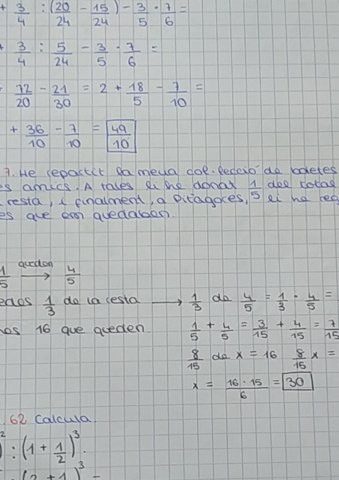 + 3/4 : (20/24 - 15/24) - 3/5 · 7/6 =
+ 3/4 : 5/24 - 3/5 · 7/6 =
72/20 - 21/30 = 2 + 18/5 - 7/10 =
+ 36/10 - 7/10 = 49/10
7. He repartit la meva col·lecció de boletes
es amics. A tales li he donat 1/5 del total
resta, i finalment, a Pitàgores, li he reg
es que em quedaben.
1/5 queden → 4/5
1/3 de la resta → 1/3 de 4/5 = 1/3 · 4/5 =
nos 16 que queden. 1/5 + 4/5 = 3/15 + 4/15 = 7/15
8/15 de x = 16 8/15 x =
x = 16·15/6 = 30
.62 Calcula.
2 : (1 + 1/2)^3.